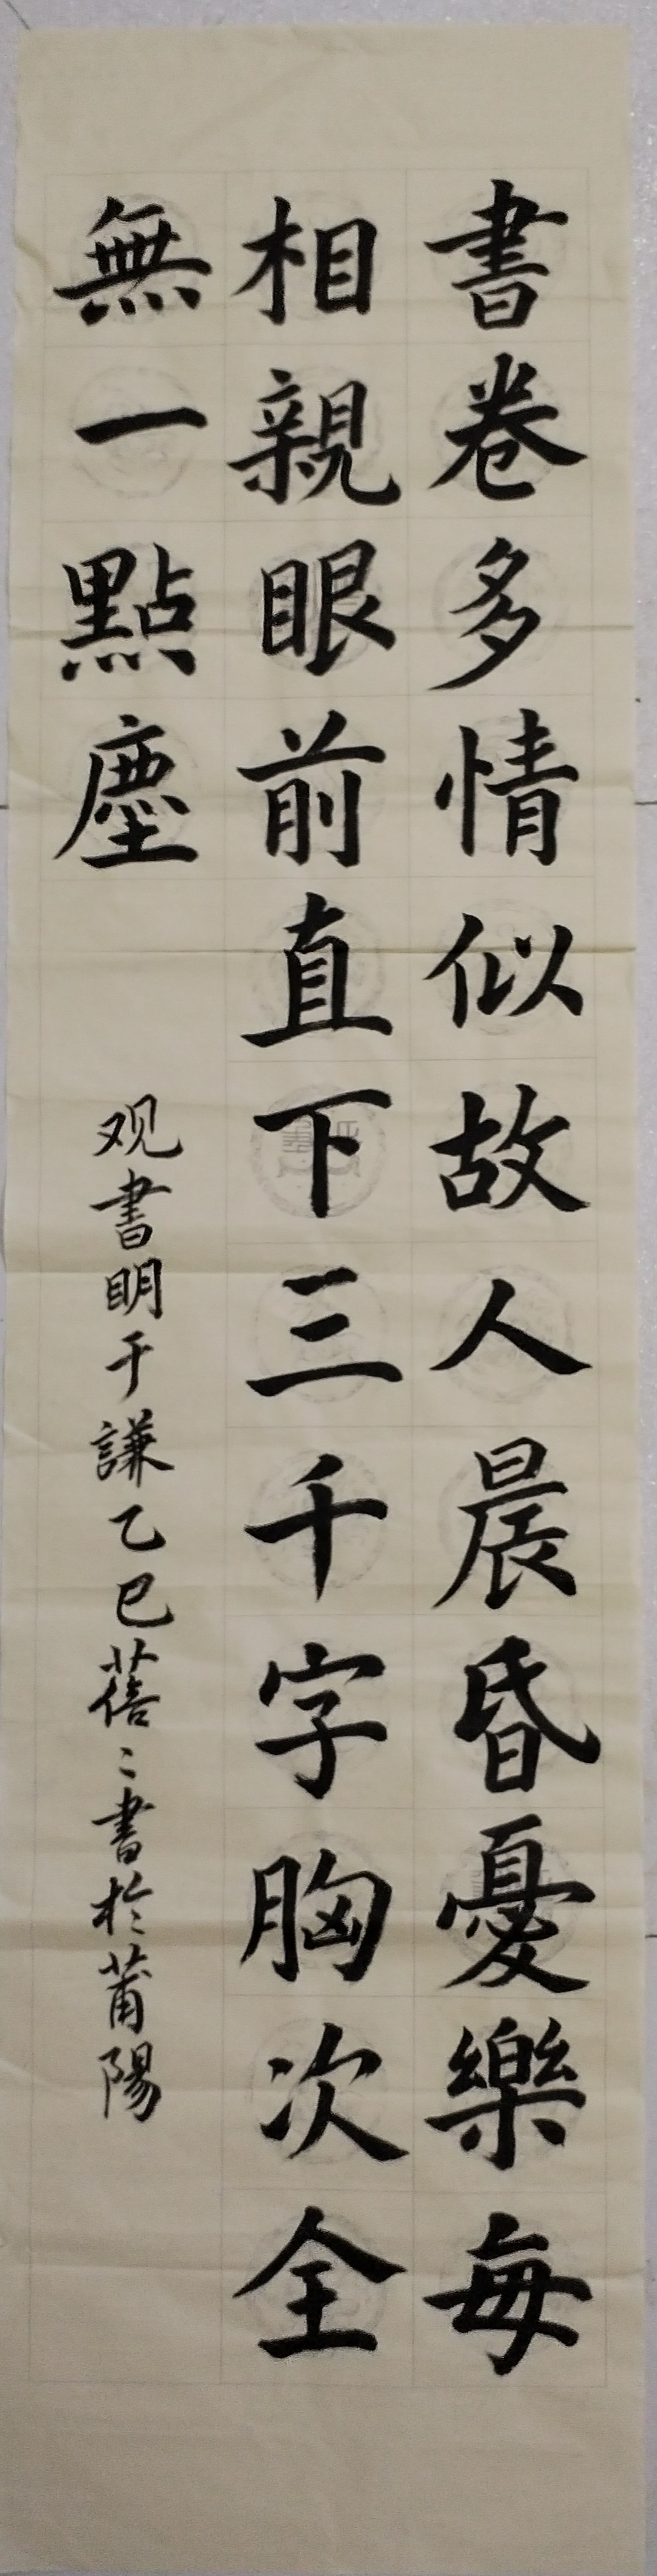 書卷多情似故人晨昏憂樂每
相親眼前直下三千字胸次全
無一點塵
观書明于謙乙巳蓓〻書於莆陽